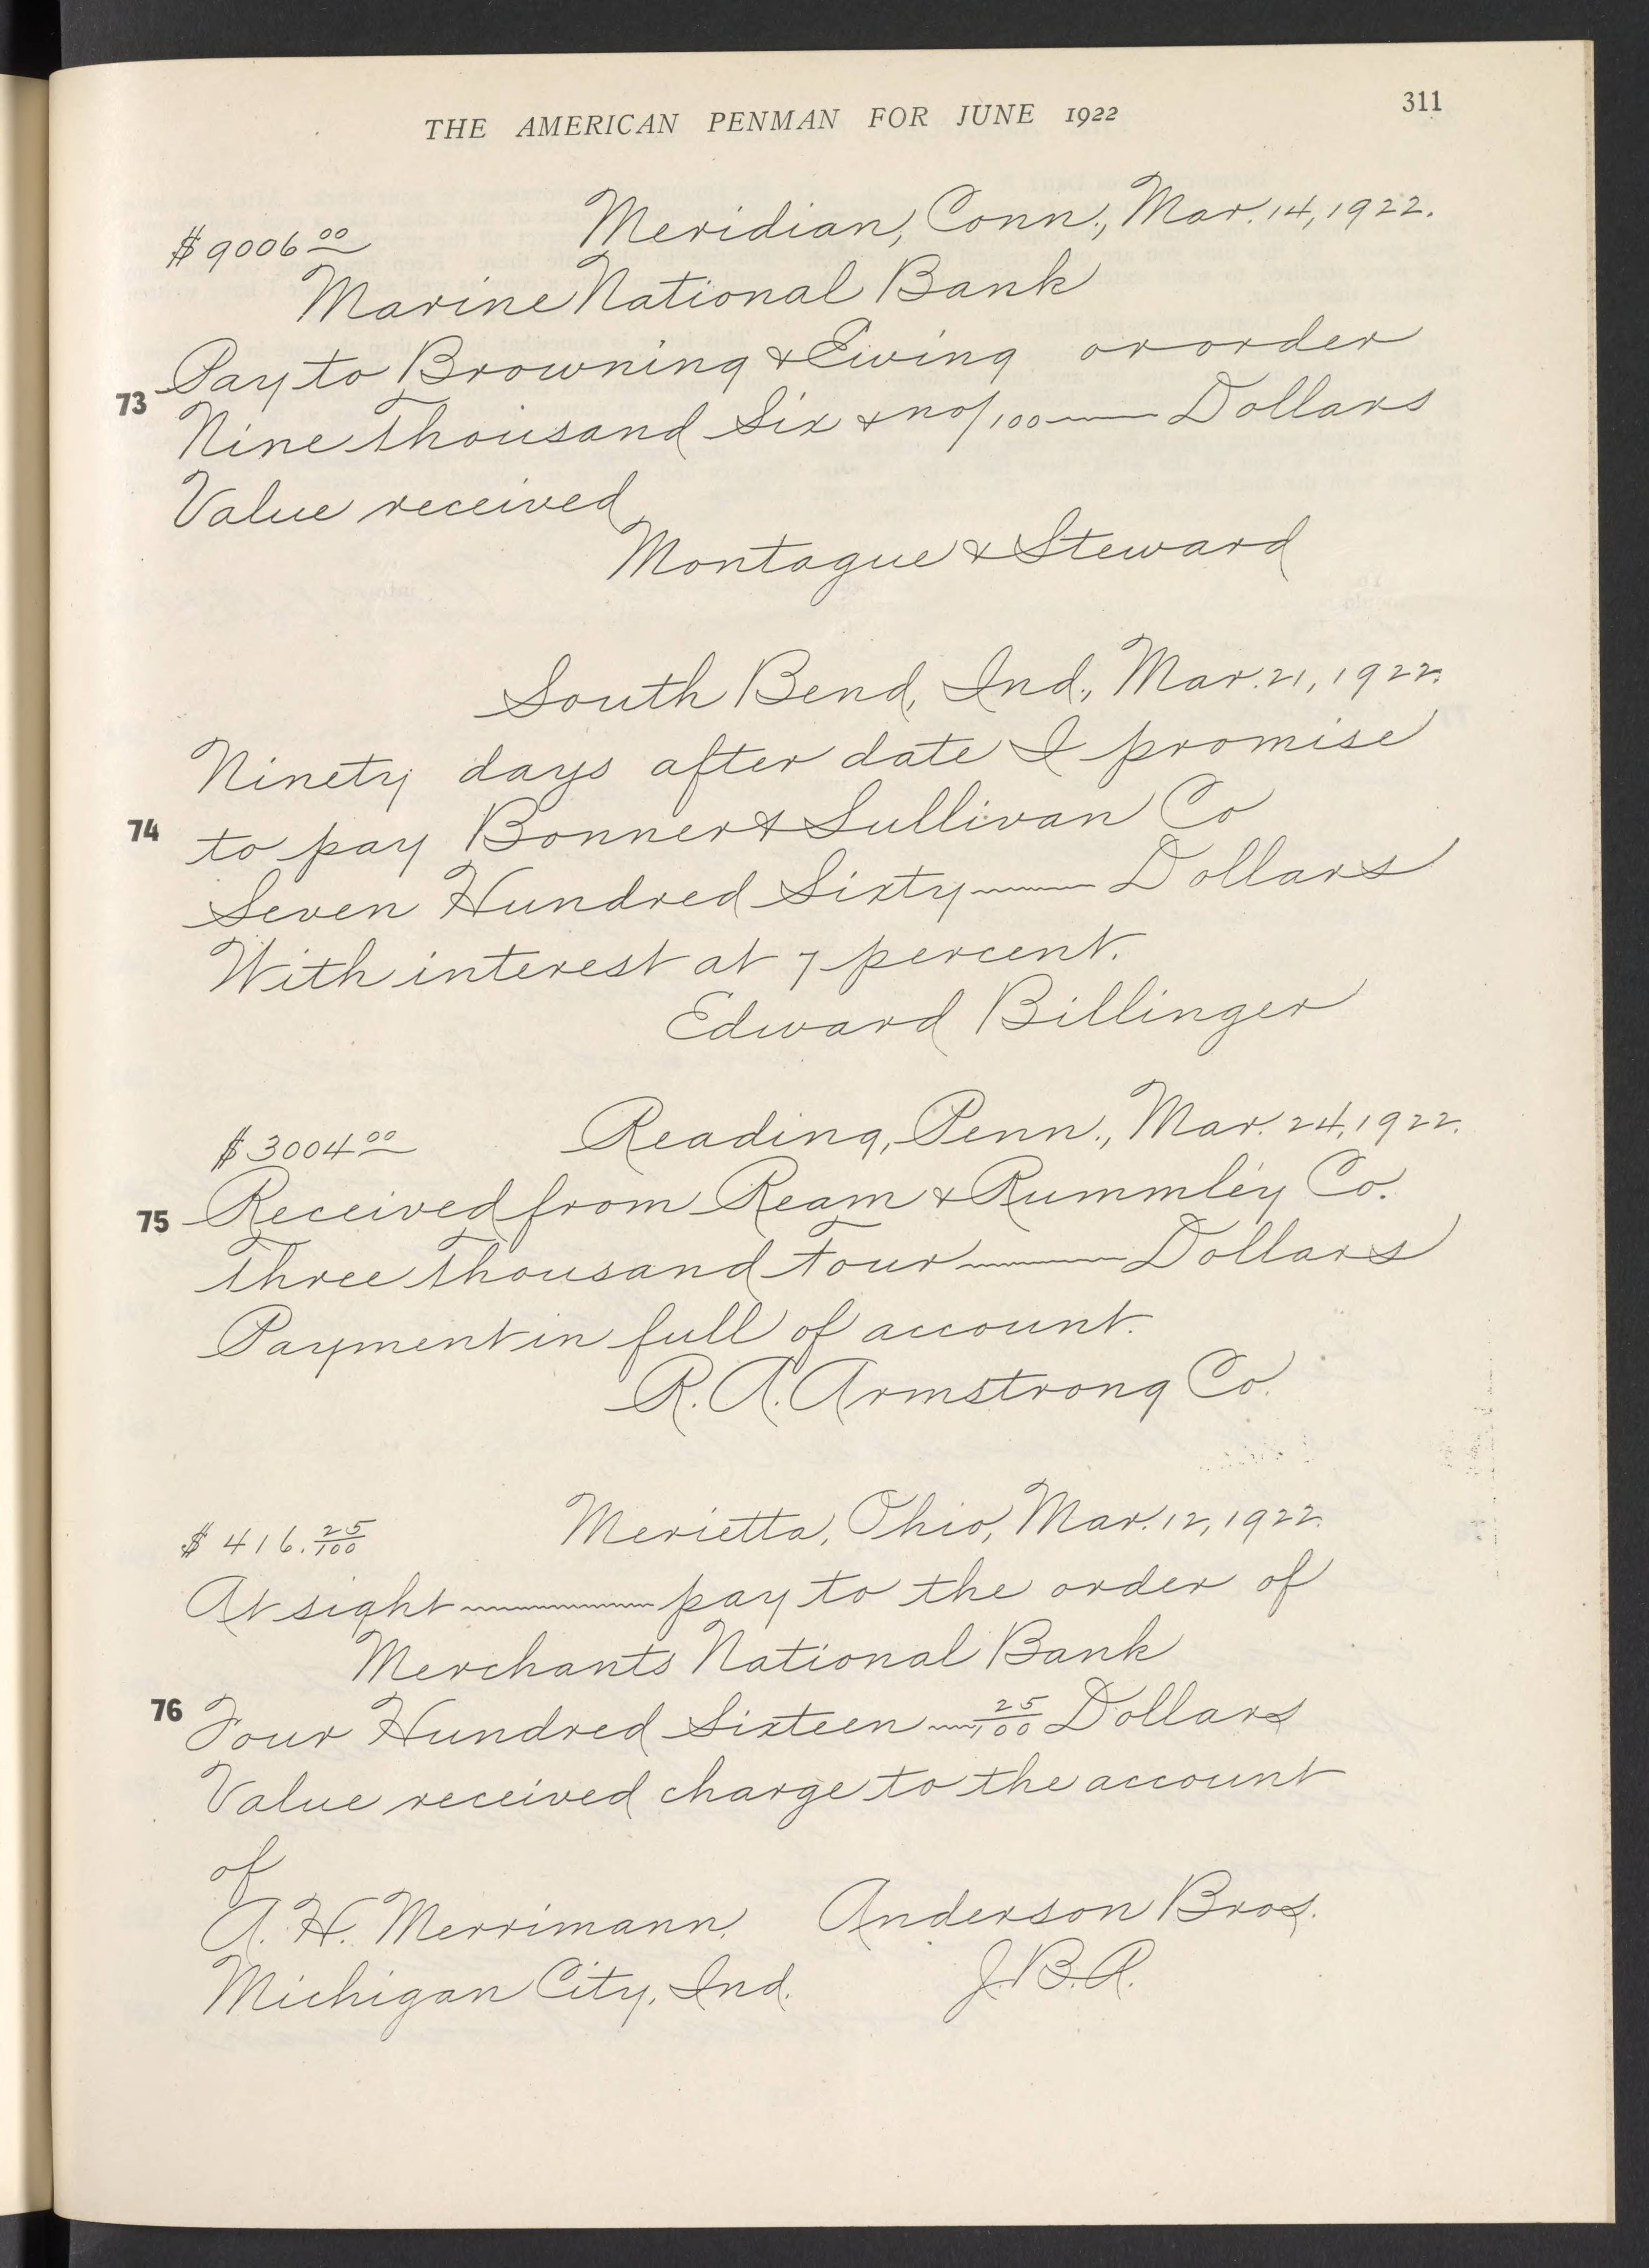 THE AMERICAN PENMAN FOR JUNE 1922
311
Meridian, Conn., Mar. 14, 1922.
$9006 00
Marine National Bank
Pay to Browning & Ewing or order
73
Nine Thousand Six & no/100 Dollars
Value received
Montague & Steward
South Bend, Ind., Mar. 21, 1922.
Ninety days after date I promise
74
to pay Bonner & Sullivan Co
Seven Hundred Sixty Dollars
With interest at 7 percent.
Edward Billinger
$3004 00 Reading, Penn., Mar. 24, 1922.
75
Received from Ream & Rummley Co.
Three Thousand Four Dollars
Payment in full of account.
R. A. Armstrong Co.
$416. 25/100 Merietta, Ohio, Mar. 12, 1922.
At sight pay to the order of
Merchants National Bank
76
Four Hundred Sixteen 25/100 Dollars
Value received charge to the account
of
A. H. Merrimann. Anderson Bros.
Michigan City, Ind. J. B. A.